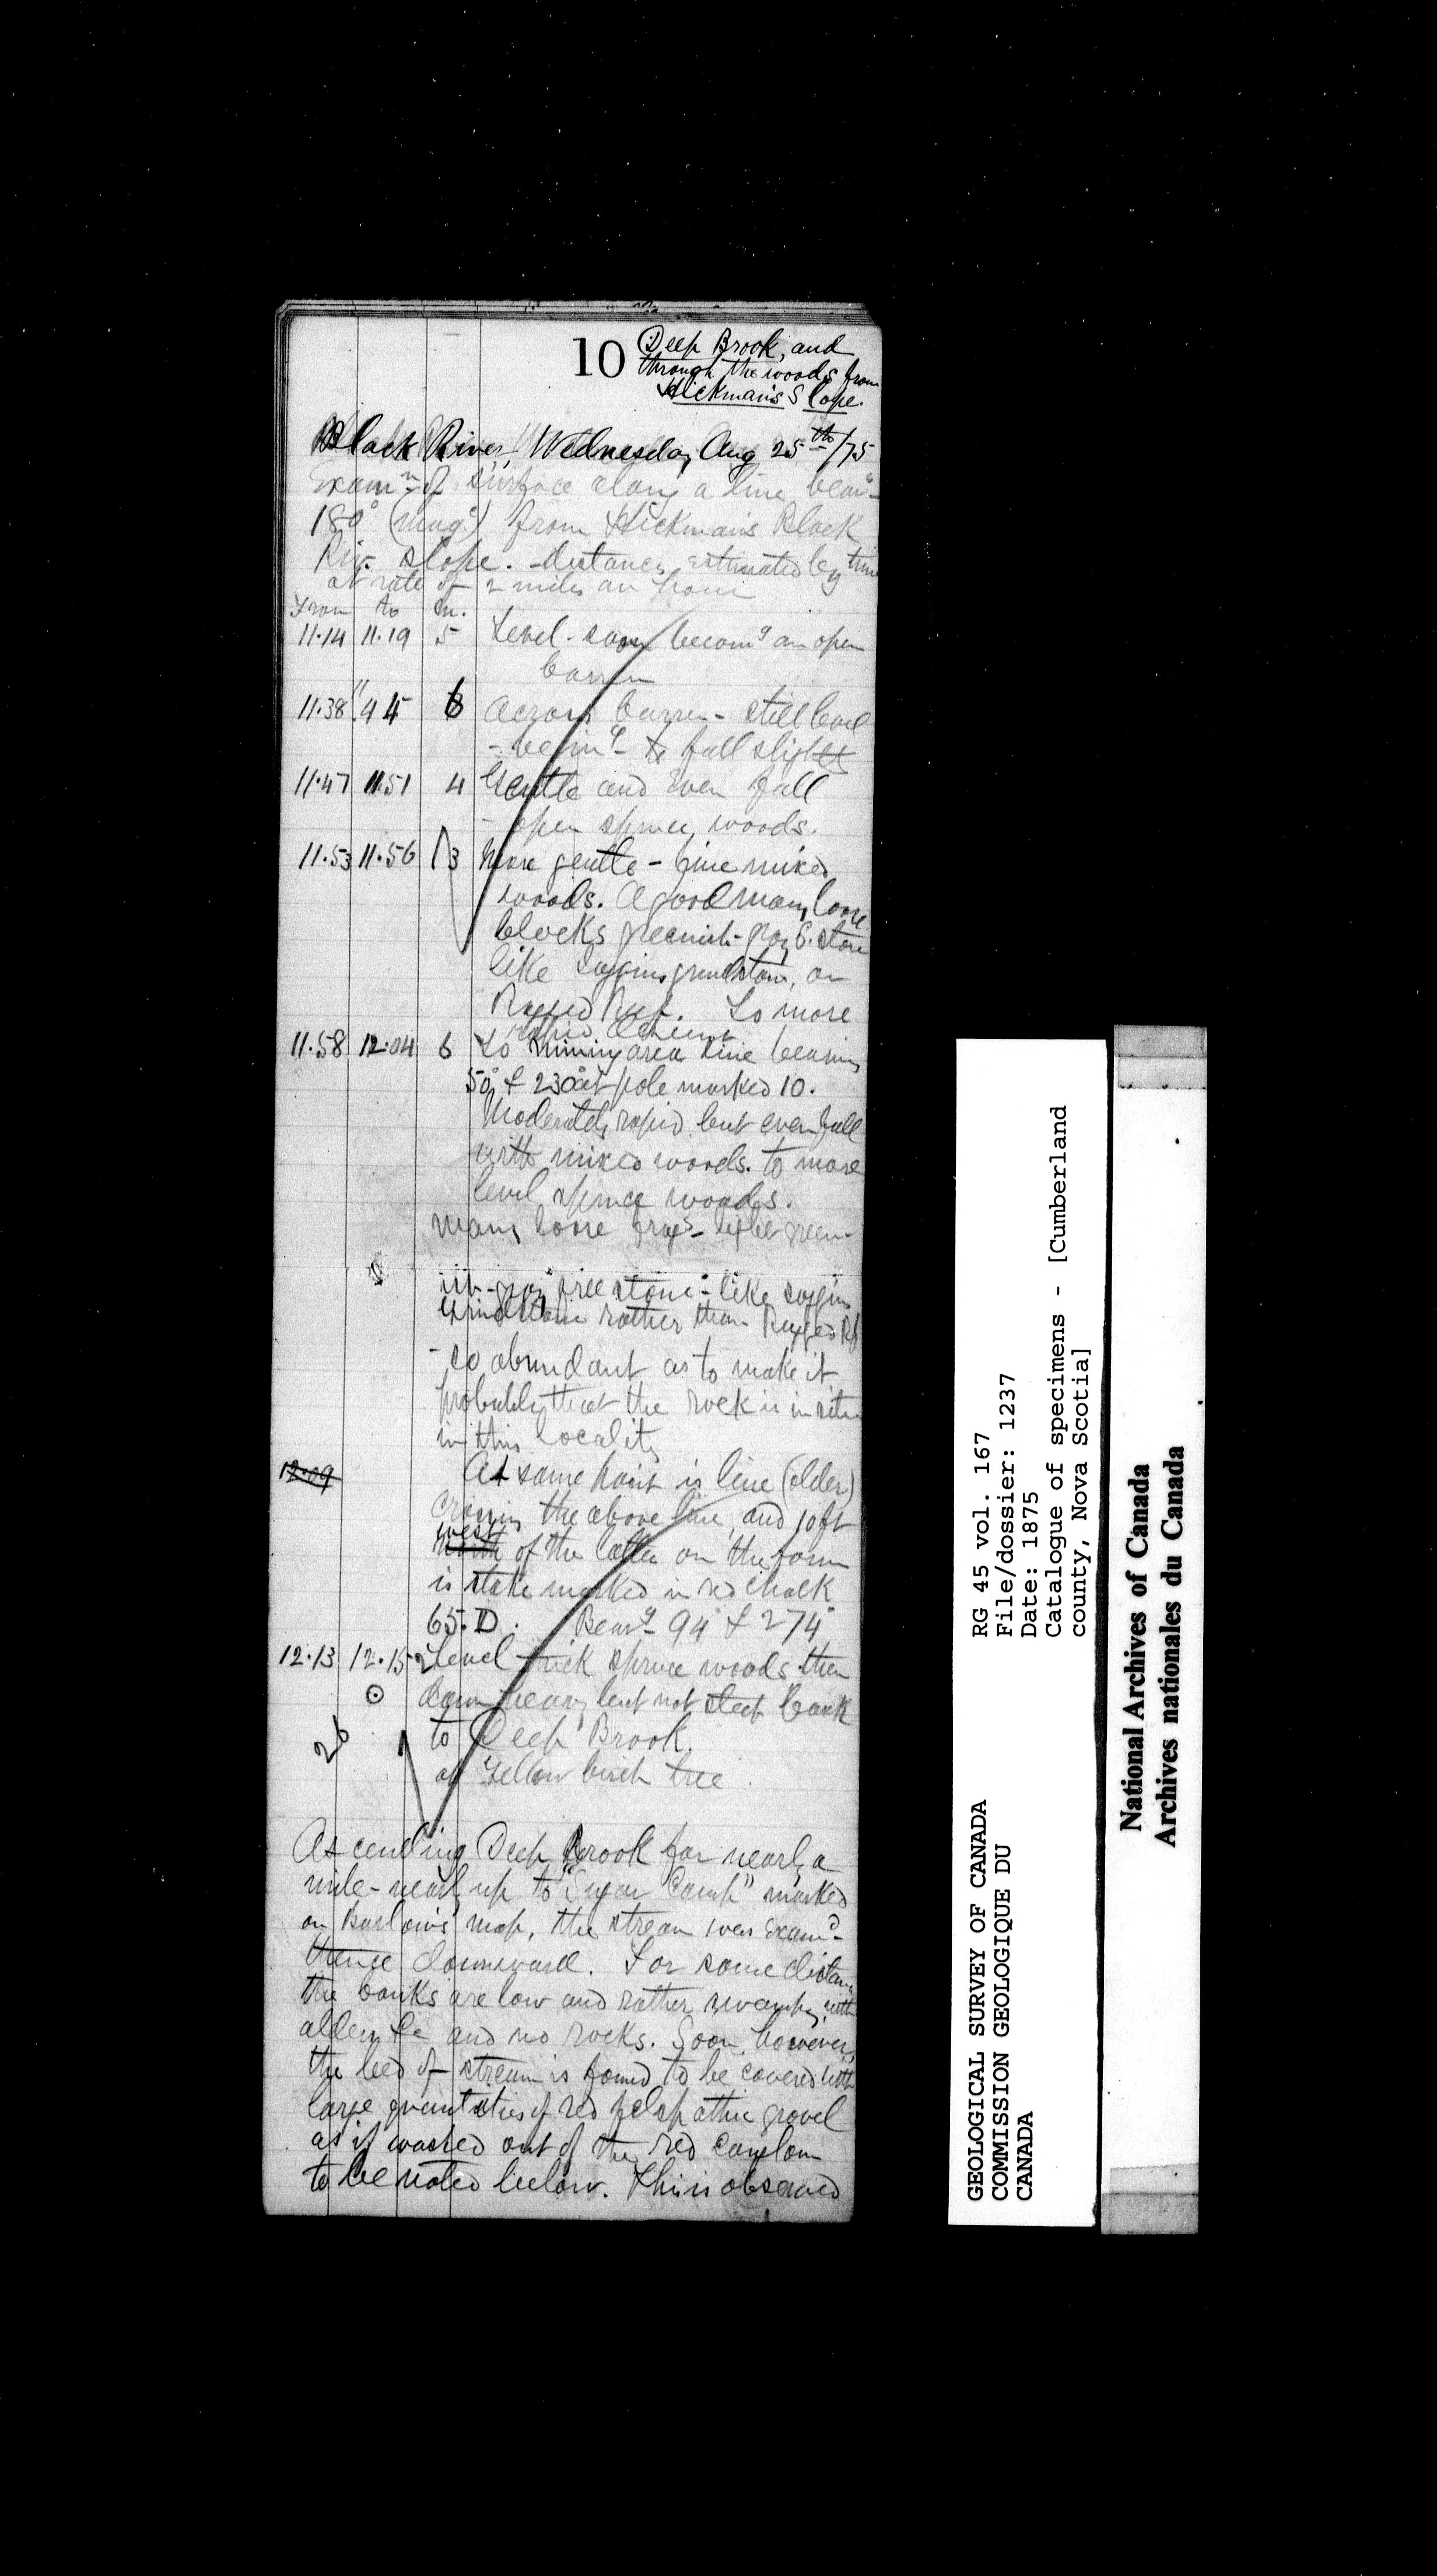 10 Deep Brook, and
through the woods from
Hickman's Slope.
Black River, Wednesday Aug 25th/75
Exam.n of surface along a line bear.g
180° (mag.c) from Hickman's Black
Riv. slope. - distances estimated by time
at rate of 2 miles an hour
From to m.
11.14 11.19 5 Level - soon becom.g an open
barren
11.38 " 45 6 Across barren - still level
- begin.g to fall slightly
11.47 11.51 4 Gentle and even fall
- open spruce woods.
11.53 11.56 3 More gentle - fine mixed
woods. A good many loose
blocks greenish-gray s. stone
like Joggins grindstone, or
Ragged Reef. To more
rapid descent
11.58 12.04 6 To mining area line bearing
50° & 230° at pole marked 10.
Moderately rapid but even fall
with mixed woods. to more
level spruce woods.
Many loose frags - light green-
ish-gray free stone - like Joggins
Grindstone rather than Ragged Rf
- so abundant as to make it
probably that the rock is in situ
in this locality
12.09 At same point is line (older)
crossing the above line, and 10 ft
west
north of the latter on the form
is stake marked in red chalk
65.D. Bear.g 94° & 274°
12.13 12.15 2 Level thick spruce woods then
down heavy but not steep bank
26 to Deep Brook.
at yellow birch tree.
Ascending Deep Brook for nearly a
mile - nearly up to "Sugar Camp" marked
on Barlow's map, the stream was exam.d
thence downward. For some distance
the banks are low and rather swampy, with
alders &c and no rocks. Soon, however,
the bed of stream is found to be covered with
large quantities of red felspathic gravel
as if washed out of the red conglom
to be noted below. This is observed
RG 45 vol. 167
File/dossier: 1237
Date: 1875
Catalogue of specimens - [Cumberland
county, Nova Scotia]
GEOLOGICAL SURVEY OF CANADA
COMMISSION GEOLOGIQUE DU
CANADA
National Archives of Canada
Archives nationales du Canada